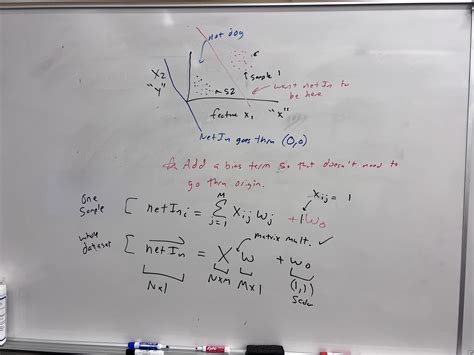 not dog
sample 1
X2
"y"
S2
want netIn to
be here
feature x1 "x"
NetIn goes thru (0,0)
Add a bias term so that doesn't need to
go thru origin.
xij = 1
One
Sample [ netIni = M Σ j=1 xij wj + 1 w0
whole
dataset [ netIn = X w + w0
matrix mult. ✓
N×1 N×M M×1 (1,)